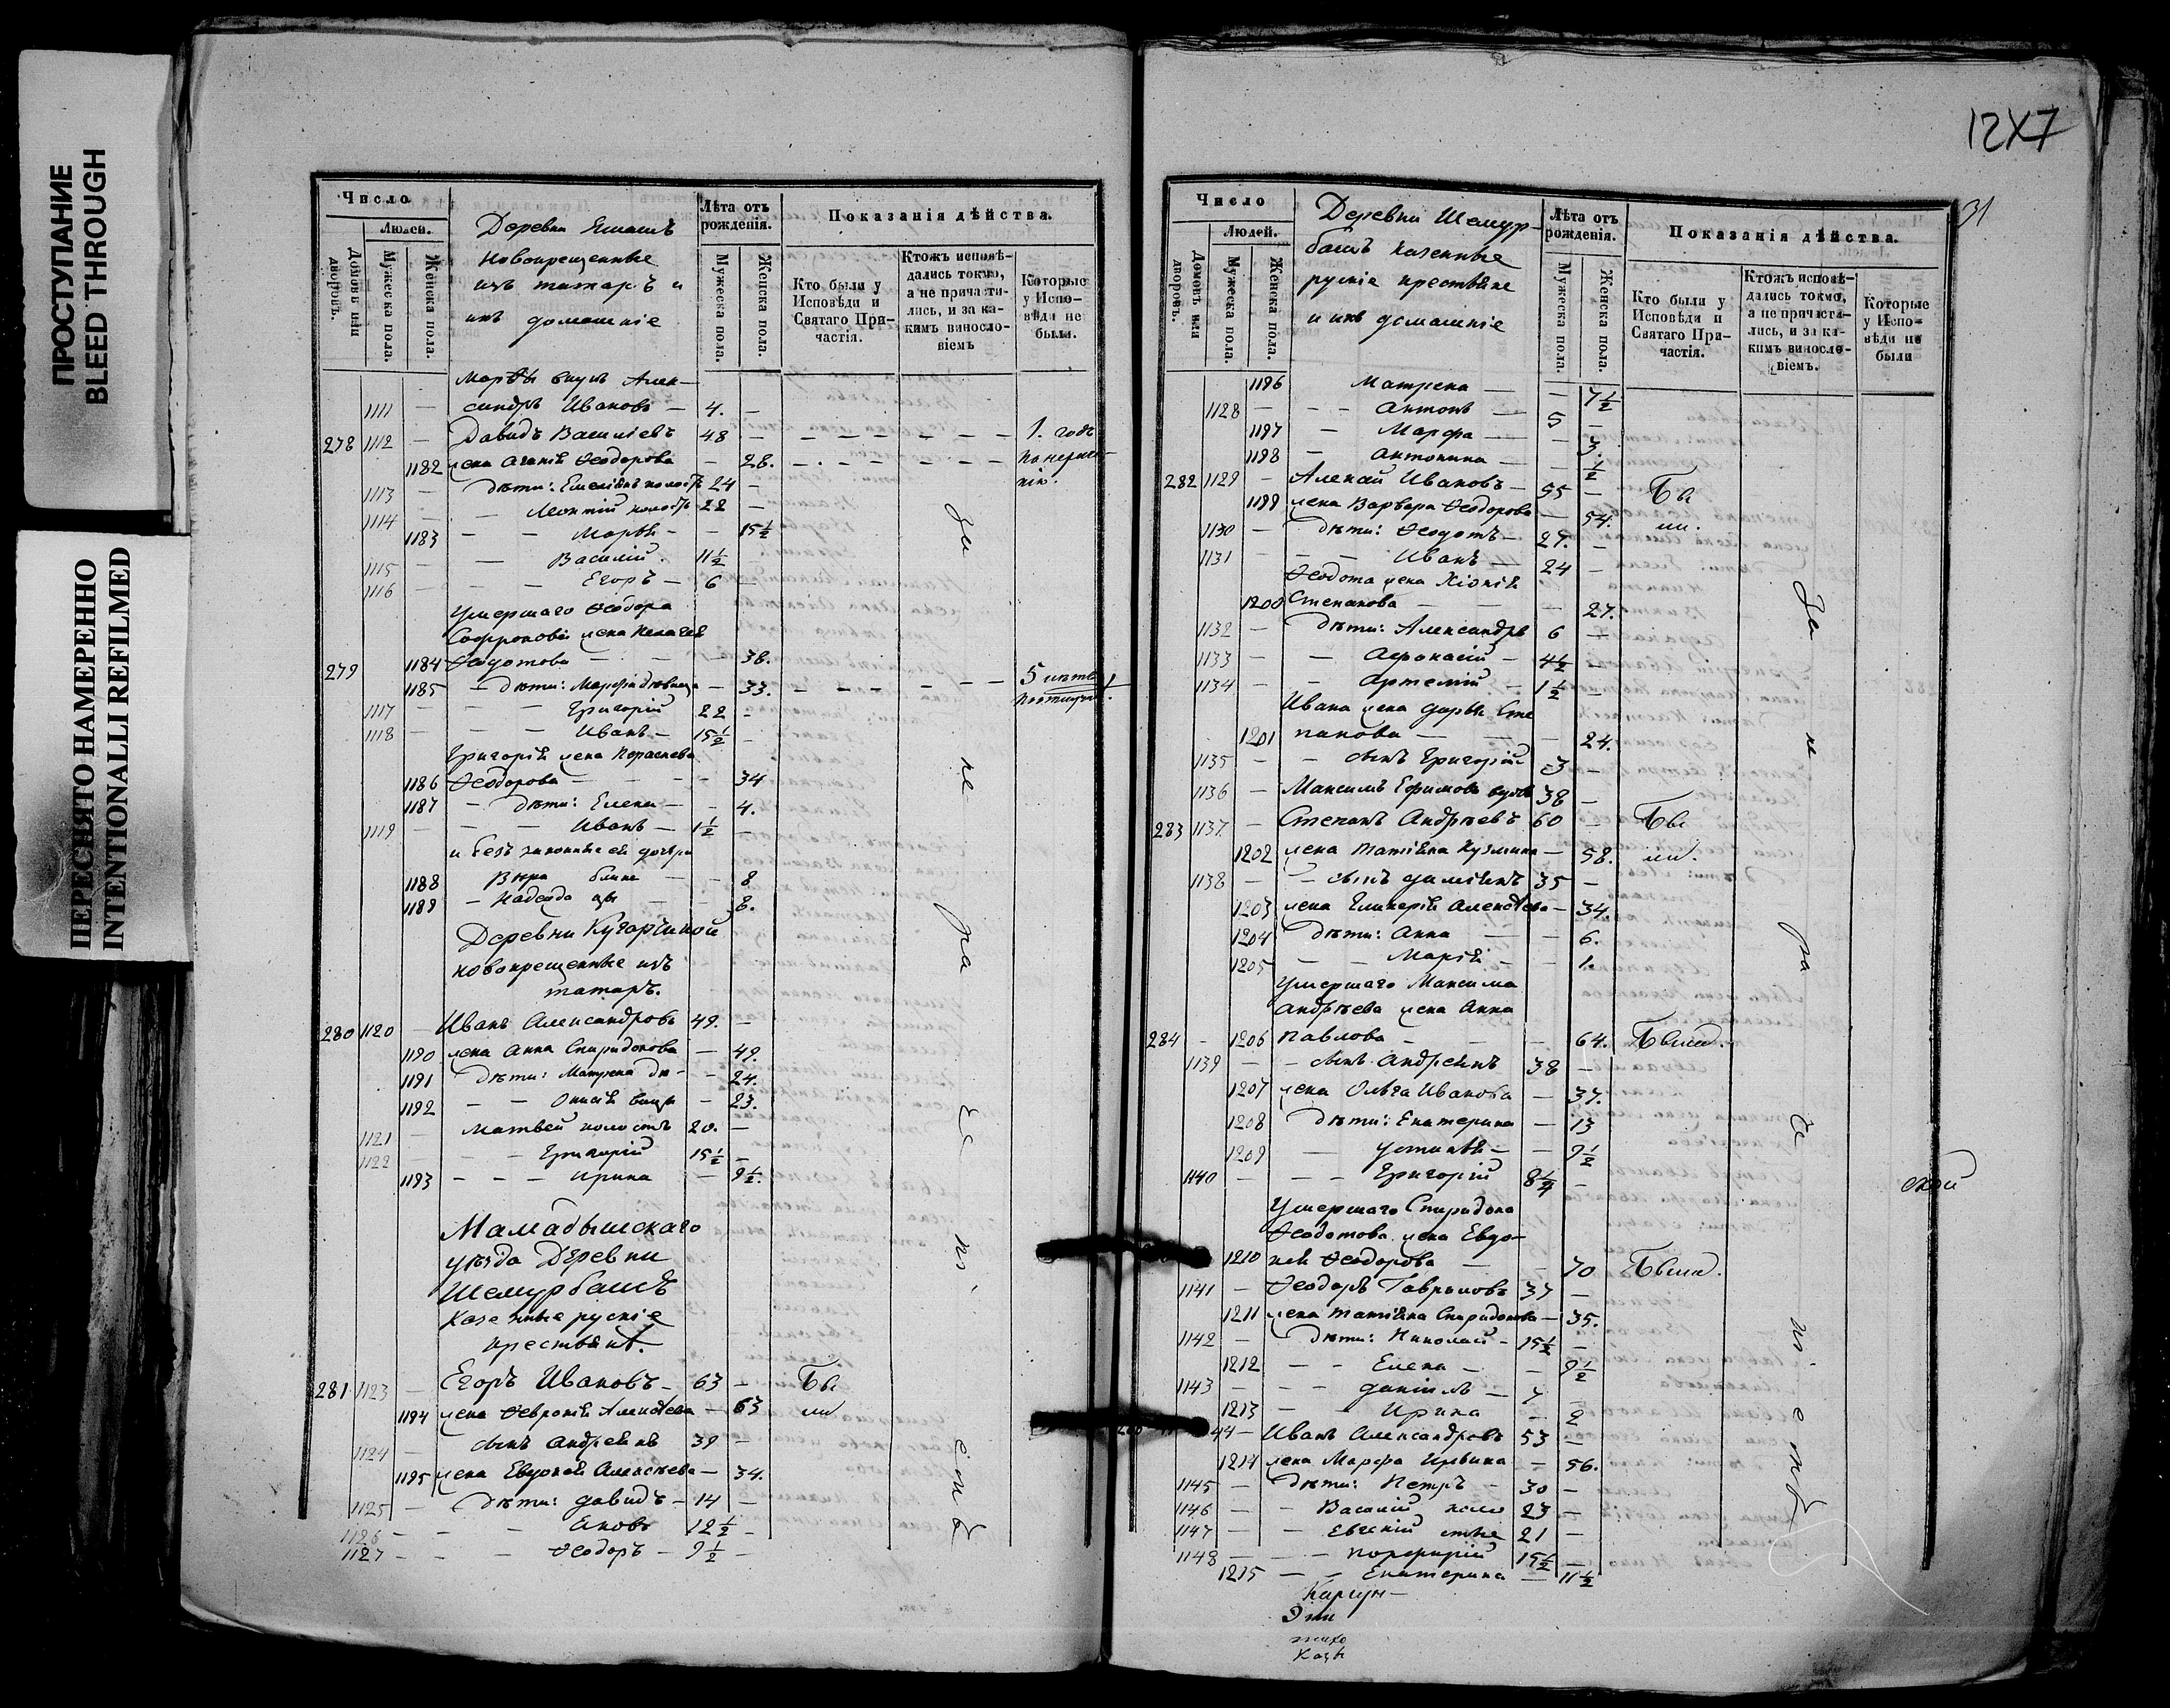 ПРОСТУПАНИЕ
BLEED THROUGH
ПЕРЕСНЯТО НАМЕРЕННО
INTENTIONALLI REFILMED
Число
Людей.
Домовъ или дворовъ.
Мужеска пола.
Женска пола.
Деревни
новокрещенные
изъ татаръ и
ихъ домашніе
Лѣта отъ рожденія.
Мужеска пола.
Женска пола.
Показанія дѣйства.
Кто были у Исповѣди и Святаго Причастія.
Ктожъ исповѣдались токмо, а не причастились, и за какимъ винословіемъ
Которые у Исповѣди не были.
Марѳы внукъ Алек-
1111 — сандръ Ивановъ — 4. —
278 1112 — Давидъ Василіевъ 48 — 1. годъ
1182 жена Агапія Ѳеодорова — 28.
1113 — дѣти: Емеліанъ холостъ 24 —
1114 — Леонтій холостъ 22 —
1183 — — Марія — — 15½
1115 — — Василій. 11½
1116 — — Егоръ — 6 —
Умершаго Ѳеодора
Софроновa жена Пелагея
279 1184 Ѳедотова — — 38.
1185 — дѣти: Марфа дѣвица — 33. 5 лѣтъ
1117 — — Григорій 22 —
1118 — — Иванъ — 15½ —
Григорія жена Параскева
1186 Ѳеодорова — — 34
1187 — дѣти: Елена — — 4.
1119 — — Иванъ — 1½ —
и безъ законные ей дочери
1188 Вѣра близне — — 8
1189 — Надежда цы — — 8.
Деревни Кугарчиной
новокрещенные изъ
татаръ.
280 1120 — Иванъ Александровъ 49. —
1190 жена Анна Спиридонова — 49.
1191 дѣти: Матрена дѣ- — 24.
1192 — — вицы — 23.
1121 — Матвей холостъ 20. —
1122 — — Григорій 15½ —
1193 — — — Ирина — 9½.
Мамадышскаго
уѣзда Деревни
Шемурбашъ
казенные рускіе
крестьяне.
281 1123 — Егоръ Ивановъ — 63 — Бы
1194 жена Ѳевронія Алексѣева — 63 ли
1124 — сынъ Андреянъ 39 —
1195 жена Евдокея Алексѣева — 34.
1125 — дѣти: Давидъ — 14 —
1126 — — — Яковъ 12½ —
1127 — — — Ѳеодоръ — 9½ —
За не ра че ні еmъ
12X7
31
Число
Людей.
Домовъ или дворовъ.
Мужеска пола.
Женска пола.
Деревни Шемур-
башъ казенные
рускіе крестьяне
и ихъ домашніе
Лѣта отъ рожденія.
Мужеска пола.
Женска пола.
Показанія дѣйства.
Кто были у Исповѣди и Святаго Причастія.
Ктожъ исповѣдались токмо, а не причастились, и за какимъ винословіемъ.
Которые у Исповѣди не были
1196 Матрена — — 7½
1128 — — — Антонъ — 5 —
1197 — Марфа — — 3.
1198 — Антонина — — ½
282 1129 — Алексѣй Ивановъ — 55 — Бы
1199 жена Варвара Ѳеодорова — 54. ли.
1130 — дѣти: Ѳеодотъ — 29. —
1131 — — — Иванъ — 24 —
Ѳеодота жена Хіонія
1200 Степанова — — — 27.
1132 — дѣти: Александръ 6 —
1133 — — Афонасій — 4½ —
1134 — — Артемій — 1½ —
Ивана жена Дарья Сте
1201 панова — — — 24.
1135 — — сынъ Григорій 3 —
1136 — Максимъ Ефимовъ вдовъ 38 —
283 1137. — Степанъ Андрѣевъ 60 — Бы
1202 жена Татіяна Кузмина — 58. ли.
1138 — — сынъ Даміянъ 35 —
1203 жена Гликерія Алексѣева — 34.
1204 дѣти: Анна — — 6.
1205 — — Марія — — 1.
Умершаго Максима
Андрѣева жена Анна
284 — 1206 Павлова — — — 64. Была.
1139 — — сынъ Андреянъ 38 —
1207 жена Ольга Иванова — 37.
1208 дѣти: Екатерина — 13
1209 — Устинья — — 9½
1140 — — — Григорій 8½ —
Умершаго Спиридона
Ѳеодотова жена Евдо-
1210 кея Ѳеодорова — — 70 Была.
1141 — Ѳеодоръ Гавриловъ 37 —
1211 жена Татіяна Спиридонова — 35.
1142 — дѣти: Николай — 15½ —
1212 — — Елена — — 9½
1143 — — — Даніилъ — 7 —
1213 — — Ирина — 2
44 — Иванъ Александровъ 53 —
1214 жена Марфа Ильина — 56.
1145 — дѣти: Петръ — 30 —
1146 — — Василій холо 23 —
1147 — — Евгеній стые 21 —
1148 — — — Порфирій 15½ —
1215 — — Екатерина — 11½
За не ра че ні емъ
ской